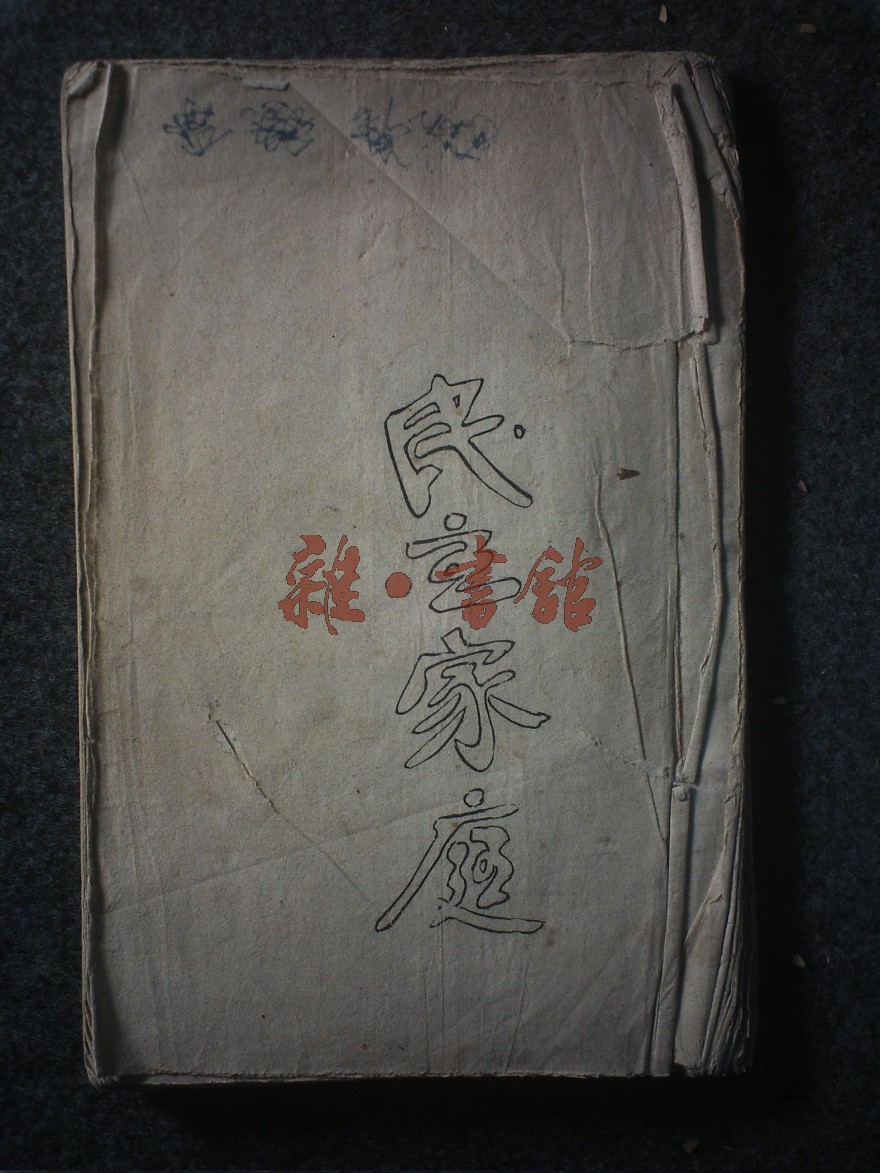 民主家庭
雜·書館